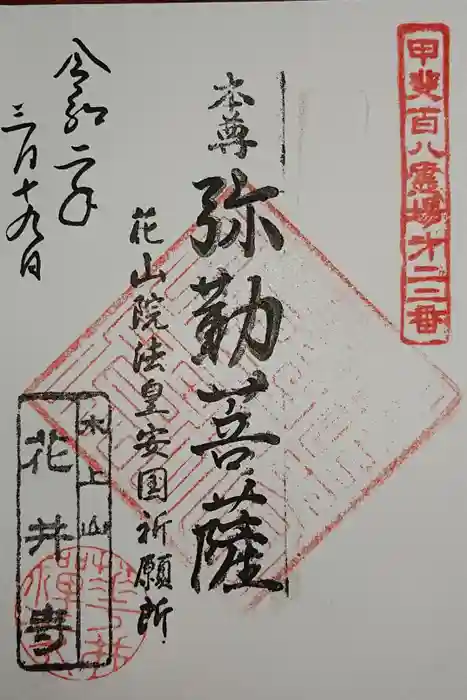 甲斐百八霊場第二二番
本尊
弥勒菩薩
花山院法皇安国祈願所
令和二年
三月十九日
水上山
花井寺